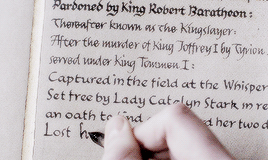 Pardoned by King Robert Baratheon:
Thereafter known as the Kingslayer:
After the murder of King Joffrey I by Tyrion
served under King Tommen I:
Captured in the field at the Whisper
Set free by Lady Catelyn Stark in re
an oath to find her two d
Lost